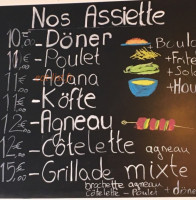 Nos Assiette
10€ - Döner
11€ - Poulet
11€ - Adana
11€ - Köfte
12€ - Agneau
12€ - Côtelette agneau
15€ - Grillade mixte
brochette agneau
Côtelette - Poulet + döne
+ Boul
+ Frit
+ Sal
+ Hou